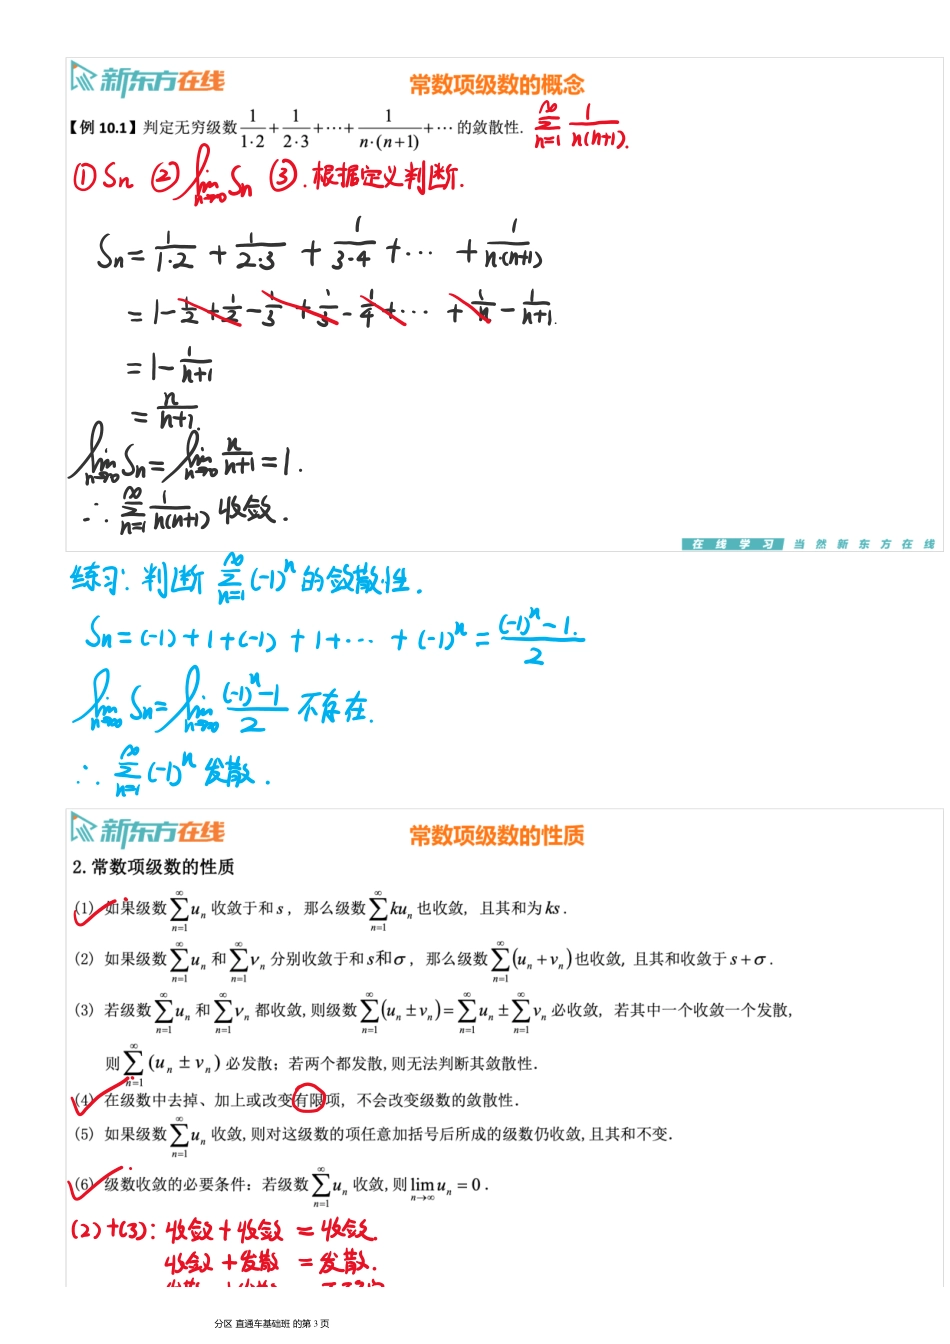 新东方在线 常数项级数的概念
【例 10.1】判定无穷级数 1/(1·2) + 1/(2·3) + ⋯ + 1/(n·(n+1)) + ⋯ 的敛散性. ∑_{n=1}^{∞} 1/(n(n+1)).
① Sn ② lim_{n→∞} Sn ③. 根据定义判断.
Sn = 1/(1·2) + 1/(2·3) + 1/(3·4) + ⋯ + 1/(n·(n+1))
= 1 - 1/2 + 1/2 - 1/3 + 1/3 - 1/4 + ⋯ + 1/n - 1/(n+1).
= 1 - 1/(n+1)
= n/(n+1).
lim_{n→∞} Sn = lim_{n→∞} n/(n+1) = 1.
∴ ∑_{n=1}^{∞} 1/(n(n+1)) 收敛.
在线学习 当然新东方在线
练习: 判断 ∑_{n=1}^{∞} (-1)^n 的敛散性.
Sn = (-1) + 1 + (-1) + 1 + ⋯ + (-1)^n = ((-1)^n - 1)/2.
lim_{n→∞} Sn = lim_{n→∞} ((-1)^n - 1)/2 不存在.
∴ ∑_{n=1}^{∞} (-1)^n 发散.
新东方在线 常数项级数的性质
2. 常数项级数的性质
(1) 如果级数 ∑_{n=1}^{∞} u_n 收敛于和 s, 那么级数 ∑_{n=1}^{∞} ku_n 也收敛, 且其和为 ks.
(2) 如果级数 ∑_{n=1}^{∞} u_n 和 ∑_{n=1}^{∞} v_n 分别收敛于和 s 和 σ, 那么级数 ∑_{n=1}^{∞} (u_n + v_n) 也收敛, 且其和收敛于 s + σ.
(3) 若级数 ∑_{n=1}^{∞} u_n 和 ∑_{n=1}^{∞} v_n 都收敛, 则级数 ∑_{n=1}^{∞} (u_n ± v_n) = ∑_{n=1}^{∞} u_n ± ∑_{n=1}^{∞} v_n 必收敛, 若其中一个收敛一个发散,
则 ∑_{n=1}^{∞} (u_n ± v_n) 必发散; 若两个都发散, 则无法判断其敛散性.
(4) 在级数中去掉、加上或改变有限项, 不会改变级数的敛散性.
(5) 如果级数 ∑_{n=1}^{∞} u_n 收敛, 则对这级数的项任意加括号后所成的级数仍收敛, 且其和不变.
(6) 级数收敛的必要条件: 若级数 ∑_{n=1}^{∞} u_n 收敛, 则 lim_{n→∞} u_n = 0.
(2)+(3): 收敛 + 收敛 = 收敛.
收敛 + 发散 = 发散.
分区 直通车基础班 的第 3 页